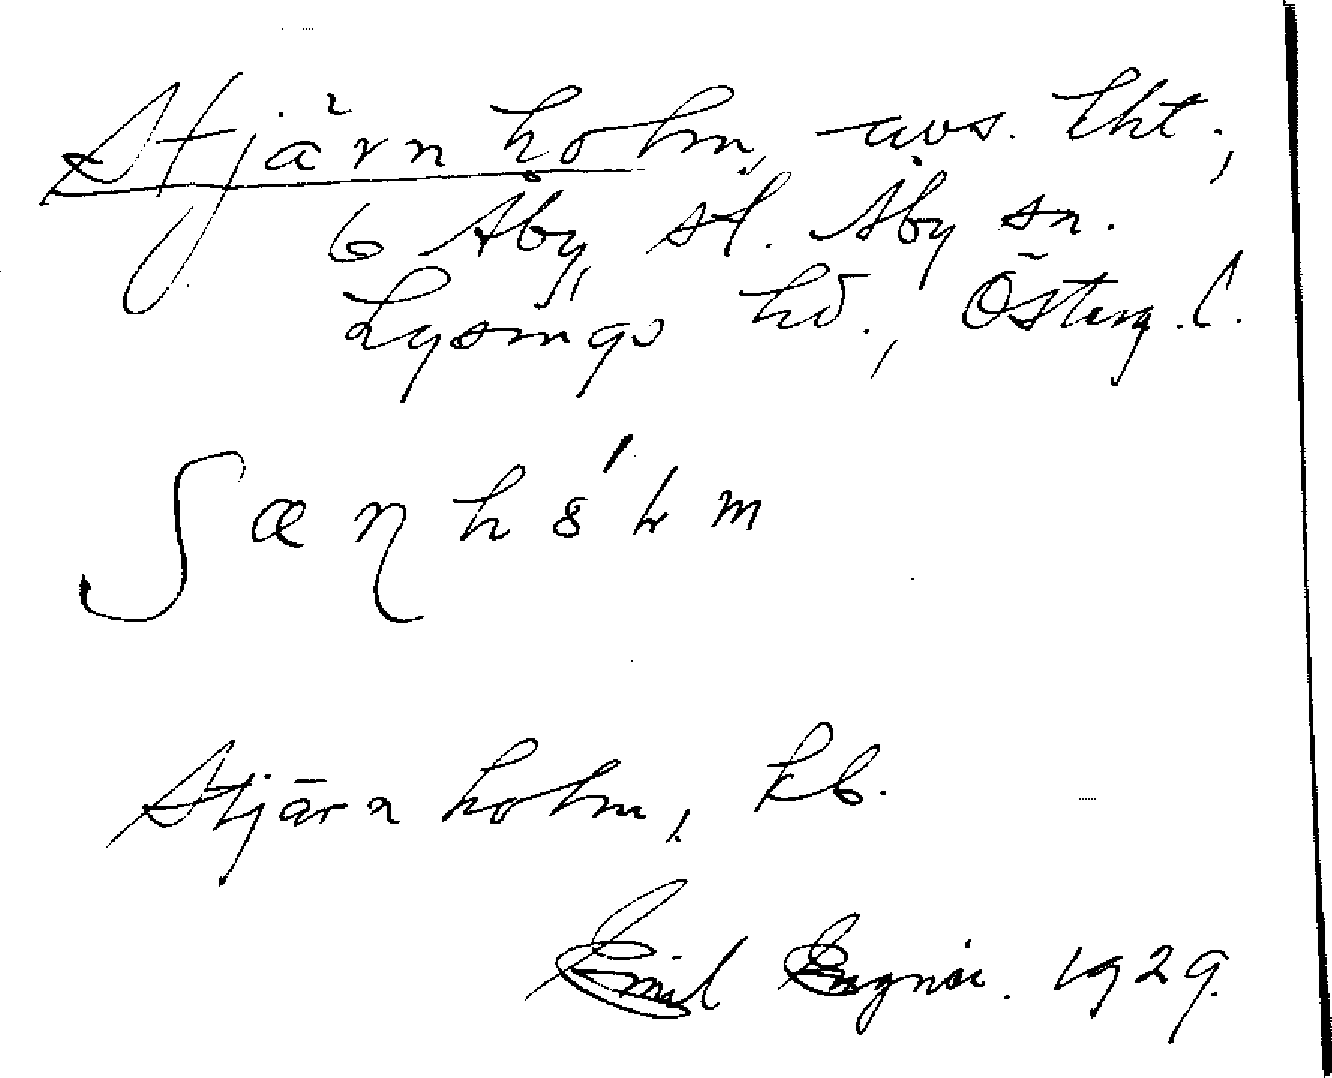 Stjärnholm, avs. lht,
6 Åby, st. Åby sn.
Lysings hd., Österg. l.
ʃæɳhó̤lm
Stjärnholm, kb.
Emil 1929.